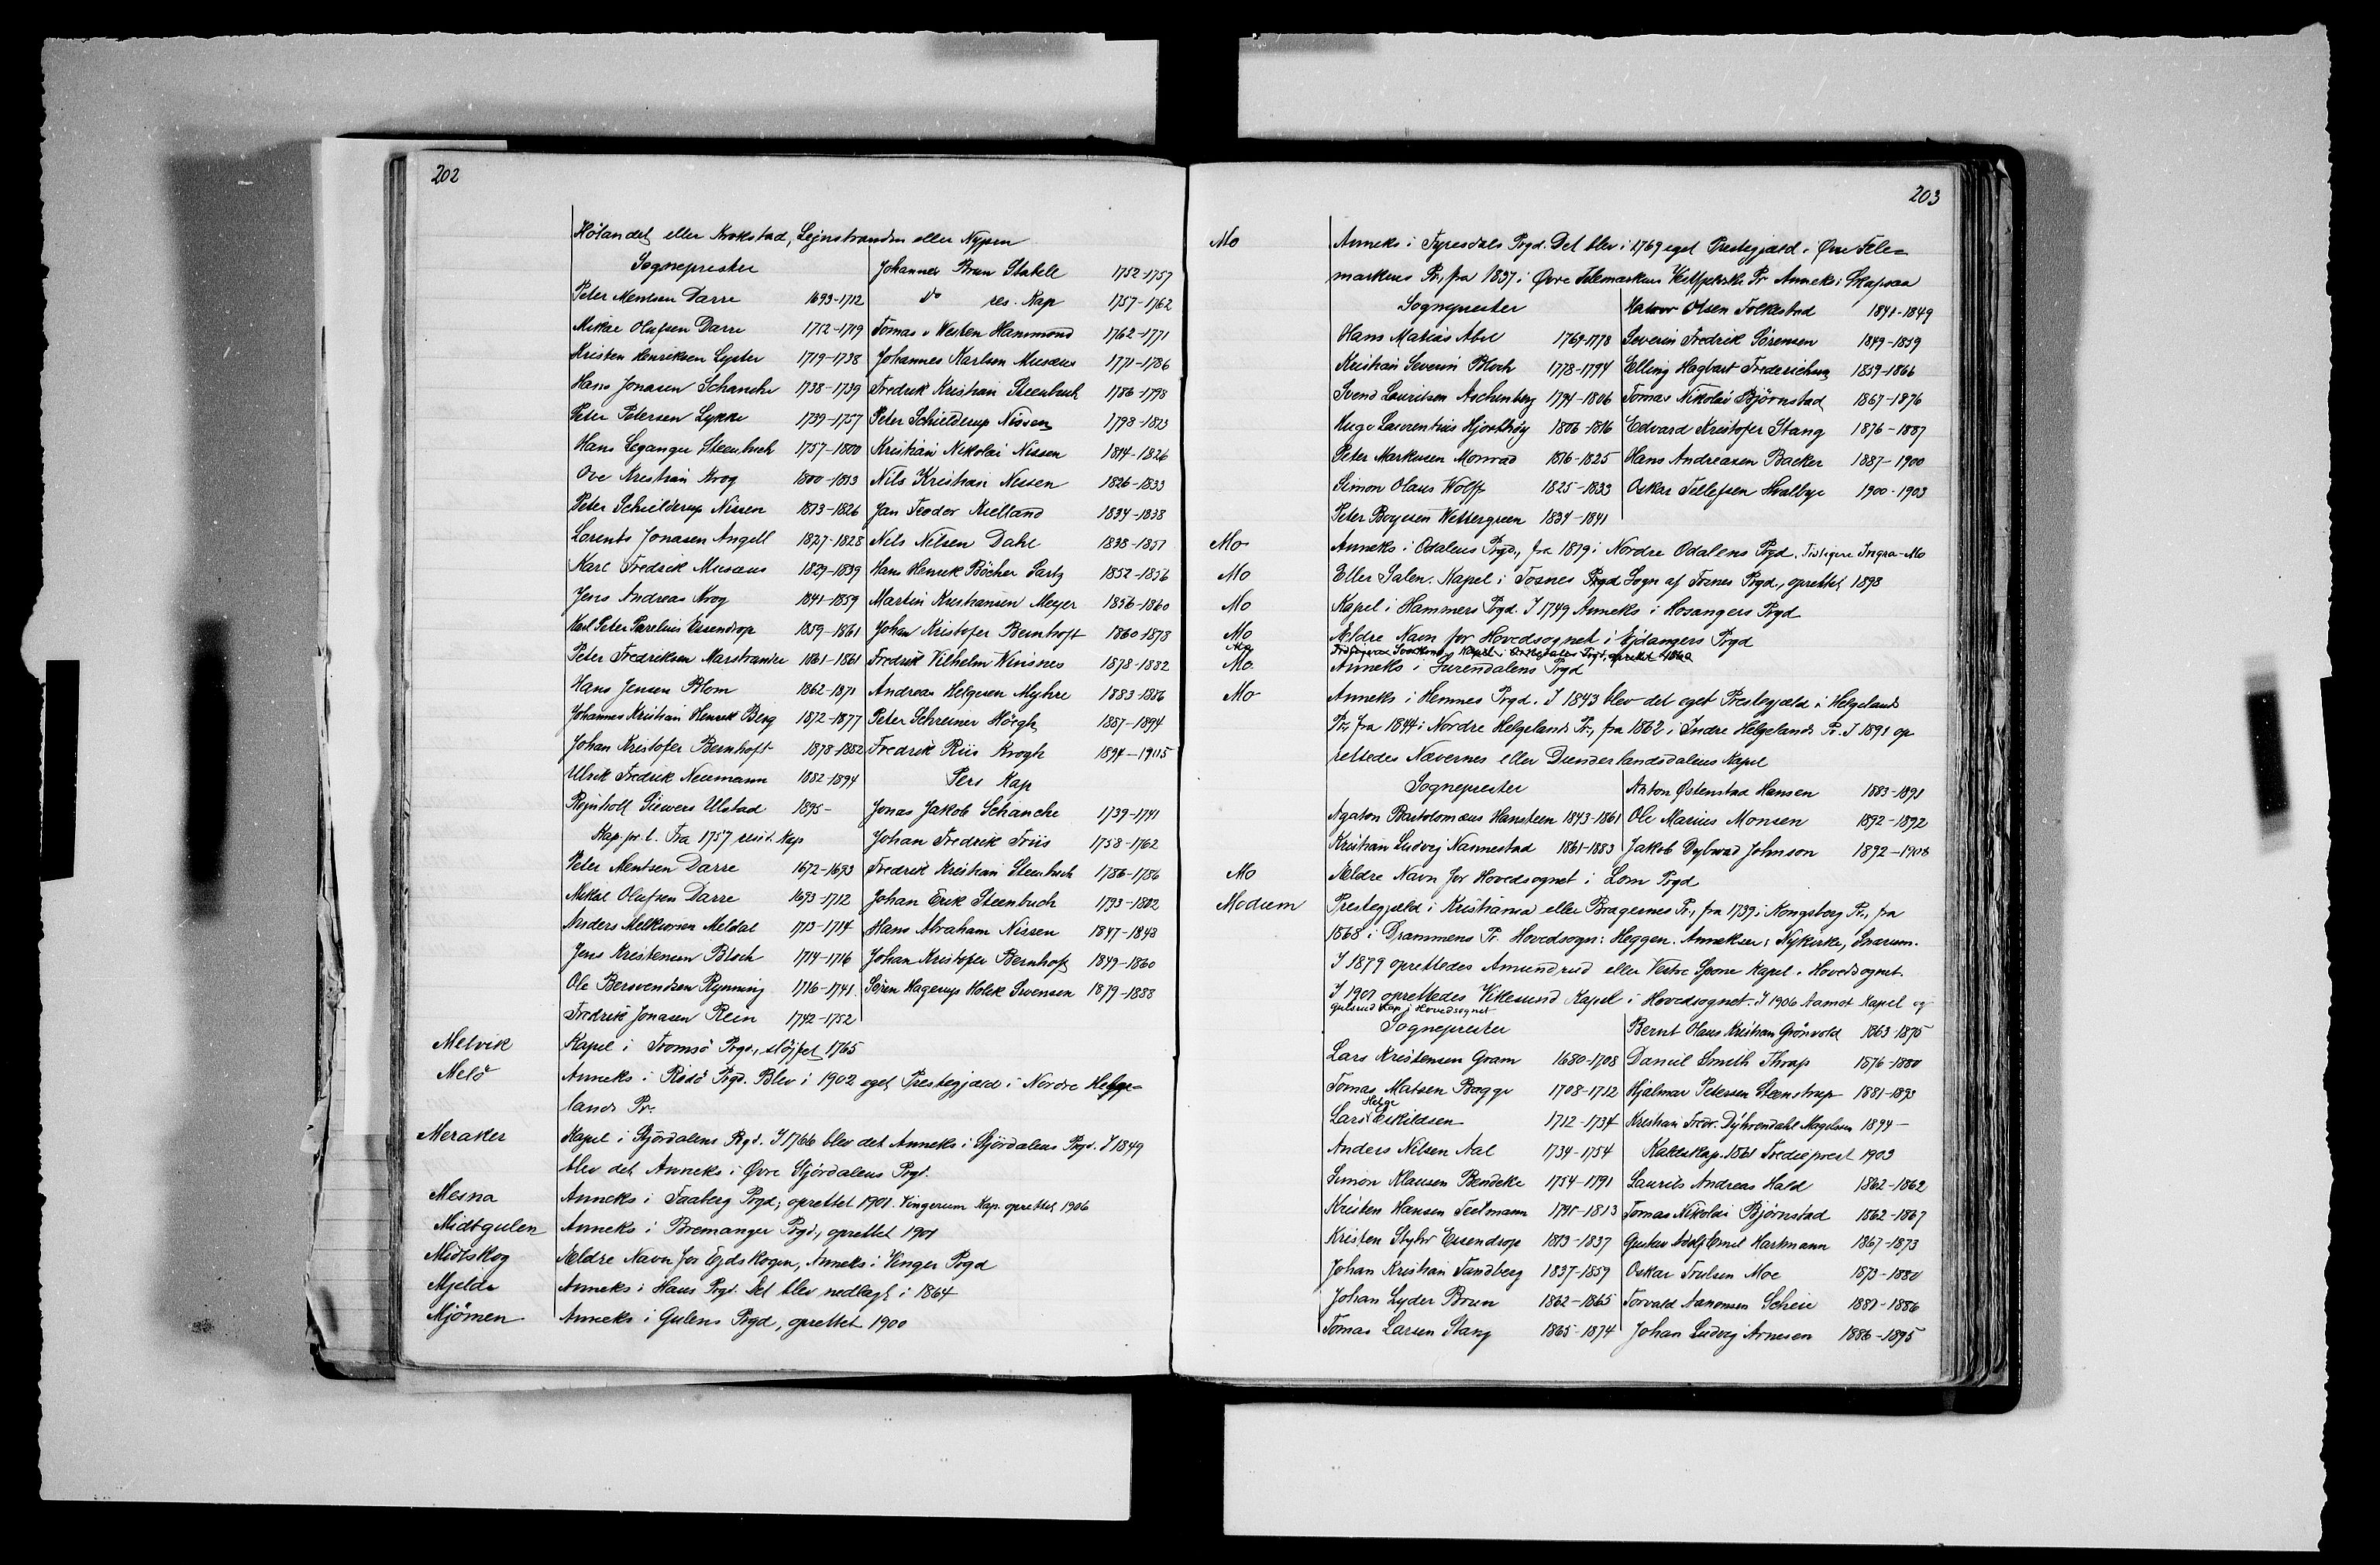 202
Hölandet eller Krokstad, Lejnstranden eller Nypen
Sogneprester
Peter Mentsen Darre 1693-1712
Mikael Olufsen Darre 1712-1719
Kristen Henriksen Lyster 1719-1738
Hans Jonasen Schanche 1738-1739
Peter Petersen Lykke 1739-1757
Hans Leganger Steenbuch 1757-1800
Ove Kristian Krog 1800-1813
Peter Schielderup Nissen 1813-1826
Lorents Jonasen Angell 1827-1828
Karl Fredrik Musæus 1829-1839
Jens Andreas Krog 1841-1859
Karl Peter Parelius Essendrop 1859-1861
Peter Fredriksen Marstrander 1861-1861
Hans Jensen Blom 1862-1871
Johannes Kristian Henrik Berg 1872-1877
Johan Kristofer Bernhoft 1878-1882
Ulrik Fredrik Neumann 1882-1894
Rejnholt Siewers Ulstad 1895-
Kap. pr. l. Fra 1757 resid. Kap
Peter Mentsen Darre 1672-1693
Mikal Olufsen Darre 1693-1712
Anders Melkiorsen Meldal 1713-1714
Jens Kristensen Bloch 1714-1716
Ole Bersvendsen Rynning 1716-1741
Fredrik Jonasen Rein 1742-1752
Johannes Brun Stabell 1752-1757
do res. Kap 1757-1762
Tomas v Westen Hammond 1762-1771
Johannes Karlsen Musæus 1771-1786
Fredrik Kristian Steenbuch 1786-1798
Peter Schielderup Nissen 1798-1813
Kristian Nikolai Nissen 1814-1826
Nils Kristian Nissen 1826-1833
Jan Teodor Kielland 1834-1838
Nils Nilsen Dahl 1838-1851
Hans Henrik Böcher Sartz 1852-1856
Martin Kristiansen Meyer 1856-1860
Johan Kristofer Bernhoft 1860-1878
Fredrik Vilhelm Winsnes 1878-1882
Andreas Helgesen Myhre 1883-1886
Peter Schreiner Höegh 1887-1894
Fredrik Riis Krogh 1894-1905
Pers Kap
Jonas Jakob Schanche 1739-1741
Johan Fredrik Friis 1758-1762
Fredrik Kristian Steenbuch 1786-1786
Johan Erik Steenbuch 1793-1802
Hans Abraham Nissen 1847-1848
Johan Kristofer Bernhoft 1849-1860
Sören Hagerup Holck Svensen 1879-1888
Melvik Kapel i Tromsö Prgd., slöjfet 1765
Melö Anneks i Rödö Prgd. Blev i 1902 eget Prestegjæld i Nordre Helge-
lands Pr.
Meraker Kapel i Stjördalens Prgd. I 1766 blev det Anneks i Stjördalens Prgd. I 1849
blev det Anneks i Øvre Stjördalens Prgd.
Mesna Anneks i Faaberg Prgd; oprettet 1901. Vingerum Kap. oprettet 1906
Midtgulen Anneks i Bremanger Prgd., oprettet 1901
Midtskog Ældre Navn for Ejdskogen, Anneks i Vinger Prgd
Mjelde Anneks i Haus Prgd. Det blev nedlagt i 1864
Mjömen Anneks i Gulens Prgd, oprettet 1900
203
Mo Anneks i Fyresdals Prgd. Det blev i 1769 eget Prestegjæld i Øvre Tele-
markens Pr, fra 1837 i Øvre Telemarkens Vestfjeldske Pr Anneks: Skafsaa
Sogneprester
Hans Matias Abel 1769-1778
Kristian Severin Bloch 1778-1794
Svend Lauritsen Aschenberg 1794-1806
Hugo Laurentius Hjorthöy 1806-1816
Peter Markusen Monrad 1816-1825
Simon Olaus Wolff 1825-1833
Peter Boyesen Wettergreen 1834-1841
Halvor Olsen Folkestad 1841-1849
Severin Fredrik Sörensen 1849-1859
Elling Hagbart Frederichsen 1859-1866
Tomas Nikolai Björnstad 1867-1876
Edvard Kristofer Stang 1876-1887
Hans Andreasen Backer 1887-1900
Oskar Tellefsen Hvalbye 1900-1903
Mo Anneks i Odalens Prgd., fra 1819 i Nordre Odalens Prgd. Tidligere Tregra-Mo
Mo Eller Salen. Kapel i Fosnes Prgd Sogn af Fosnes Prgd., oprettet 1898
Mo Kapel i Hammers Prgd. I 1749 Anneks i Hosangers Prgd
Mo Ældre Navn for Hovedsognet i Ejdangers Prgd
Mo Anneks i Surendalens Prgd
Mo Anneks i Hemnes Prgd. I 1843 blev det eget Prestegjæld i Helgelands
Pr, fra 1844 i Nordre Helgelands Pr., fra 1862 i Indre Helgelands Pr. I 1891 op
rettedes Nævernes eller Dunderlandsdalens Kapel
Sogneprester
Agaton Bartolomæus Hansteen 1843-1861
Kristian Ludvig Nannestad 1861-1883
Anton Østenstad Hansen 1883-1891
Ole Marius Monsen 1892-1892
Jakob Dybwad Johnson 1892-1908
Mo Ældre Navn for Hovedsognet i Lom Prgd
Modum Prestegjæld i Kristiania eller Bragernes Pr., fra 1739 i Kongsberg Pr., fra
1868 i Drammens Pr. Hovedsogn: Heggen. Annekser: Nykirke, Snarum.
I 1879 oprettedes Amundrud eller Vestre Spone Kapel i Hovedsognet.
I 1901 oprettedes Vikesund Kapel i Hovedsognet. I 1906 Aamot Kapel og
Gulsrud Kap i Hovedsognet
Sogneprester
Lars Kristensen Gram 1680-1708
Tomas Matsen Bagge 1708-1712
Lars Helge Eskildsen 1712-1734
Anders Nilsen Aal 1734-1754
Simon Klausen Bendeke 1754-1791
Kristen Hansen Teilmann 1791-1813
Kristen Stylw Essendrop 1813-1837
Johan Kristian Tandberg 1837-1859
Johan Lyder Brun 1862-1865
Tomas Larsen Stang 1865-1874
Bernt Olaus Kristian Grönvold 1863-1875
Daniel Smith Thrap 1876-1880
Hjalmar Petersen Steenstrup 1881-1893
Kristian Fredr. Dyhrendahl Magelssen 1894-
Kaldskap. 1861 Tredieprest 1903
Laurits Andreas Hald 1862-1862
Tomas Nikolai Björnstad 1862-1867
Gustav Adolf Emil Hartmann 1867-1873
Oskar Trulsen Moe 1873-1880
Torvald Aanonsen Scheie 1881-1886
Johan Ludvig Arnesen 1886-1895